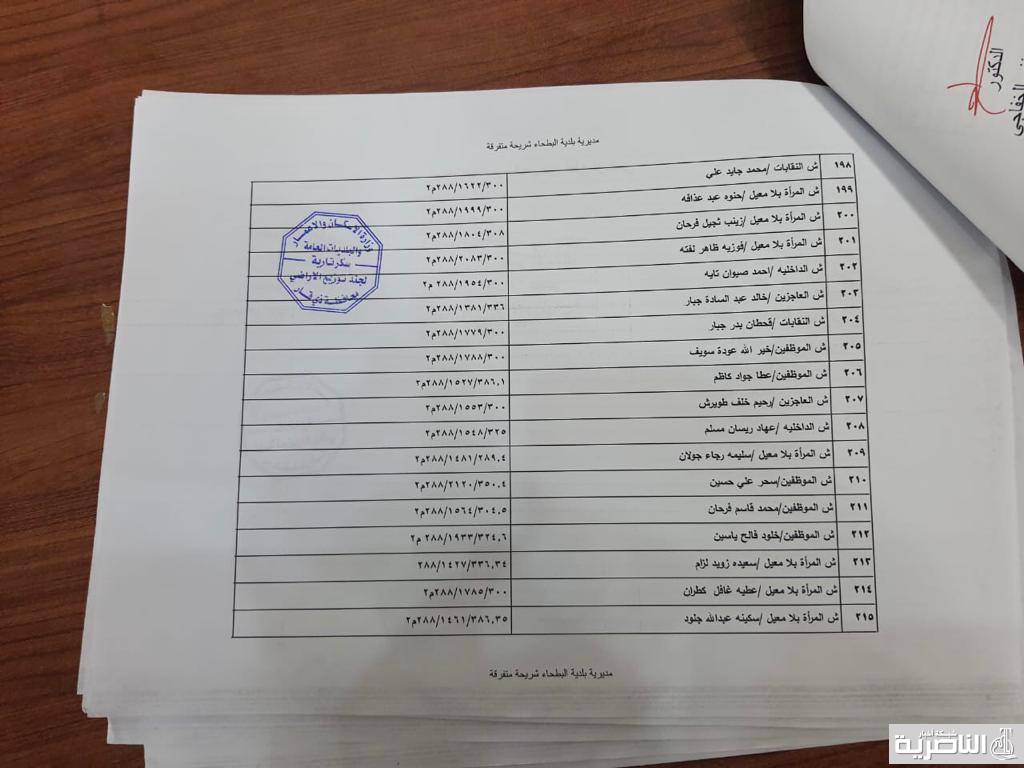 الدكتور
الخفاجي
مديرية بلدية البطحاء شريحة متفرقة
١٩٨ ش النقابات /محمد جايد علي ٢٨٨/١٦٢٢/٣٠٠م٢
١٩٩ ش المرأة بلا معيل /حنوه عبد عذافه ٢٨٨/١٩٩٩/٣٠٠م٢
٢٠٠ ش المرأة بلا معيل /زينب ثجيل فرحان ٢٨٨/١٨٠٤/٣٠٨م٢
٢٠١ ش المرأة بلا معيل /فوزيه ظاهر لفته ٢٨٨/٢٠٨٣/٣٠٠م٢
٢٠٢ ش الداخليه /احمد صيوان تايه ٢٨٨/١٩٥٤/٣٠٠ م٢
٢٠٣ ش العاجزين /خالد عبد السادة جبار ٢٨٨/١٣٨١/٣٣٦م٢
٢٠٤ ش النقابات /قحطان بدر جبار ٢٨٨/١٧٧٩/٣٠٠م٢
٢٠٥ ش الموظفين/خير الله عودة سويف ٢٨٨/١٧٨٨/٣٠٠م٢
٢٠٦ ش الموظفين/عطا جواد كاظم ٢٨٨/١٥٢٧/٣٨٦.١م٢
٢٠٧ ش العاجزين /رحيم خلف طويرش ٢٨٨/١٥٥٣/٣٠٠م٢
٢٠٨ ش الداخليه /عهاد ريسان مسلم ٢٨٨/١٥٤٨/٣٢٥م٢
٢٠٩ ش المرأة بلا معيل /سليمه رجاء جولان ٢٨٨/١٤٨١/٢٨٩.٤م٢
٢١٠ ش الموظفين/سحر علي حسين ٢٨٨/٢١٢٠/٣٥٠.٤م٢
٢١١ ش الموظفين/محمد قاسم فرحان ٢٨٨/١٥٦٤/٣٠٤.٥م٢
٢١٢ ش الموظفين/خلود فالح ياسين ٢٨٨/١٩٣٣/٣٢٤.٦ م٢
٢١٣ ش المرأة بلا معيل /سعيده زويد لزام ٢٨٨/١٤٢٧/٣٣٦.٣٤
٢١٤ ش المرأة بلا معيل /عطيه غافل كطران ٢٨٨/١٧٨٥/٣٠٠م٢
٢١٥ ش المرأة بلا معيل /سكينه عبدالله جلود ٢٨٨/١٤٦١/٣٨٦.٣٥م٢
وزارة الاسكان والاعمار
والبلديات العامة
سكرتارية
لجنة توزيع الاراضي
محافظة ذي قار
مديرية بلدية البطحاء شريحة متفرقة
شبكة أخبار
الناصرية